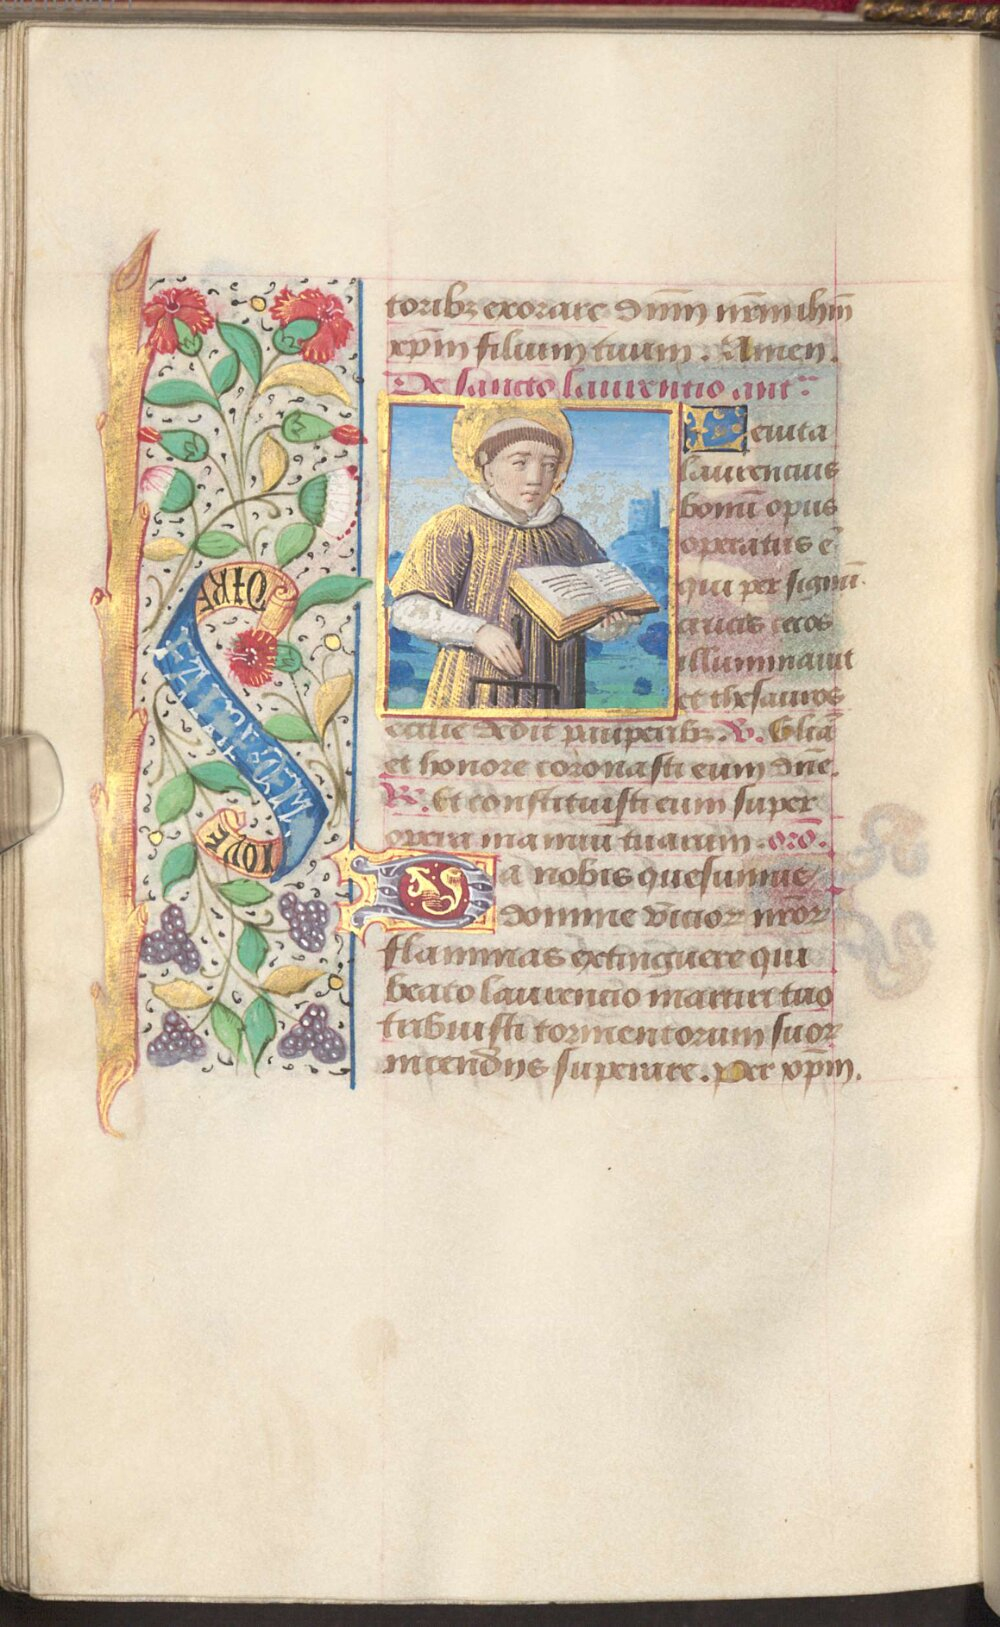 toribz exorare dnm nrm ihm
xpm filium tuum. Amen.
De sancto laurentio ant
Leuita
laurencius
bonu opus
operatus e
qui per signu
crucis cecos
illuminauit
et thesauros
ecclie dedit pauperibz. V. Glia
et honore coronasti eum dne.
R. Et constituisti eum super
opera manuu tuarum. oro.
Da nobis quesumus
domine vicior nror
flammas extinguere qui
beato laurencio martiri tuo
tribuisti tormentorum suor
incendiis superare. Per xpm.